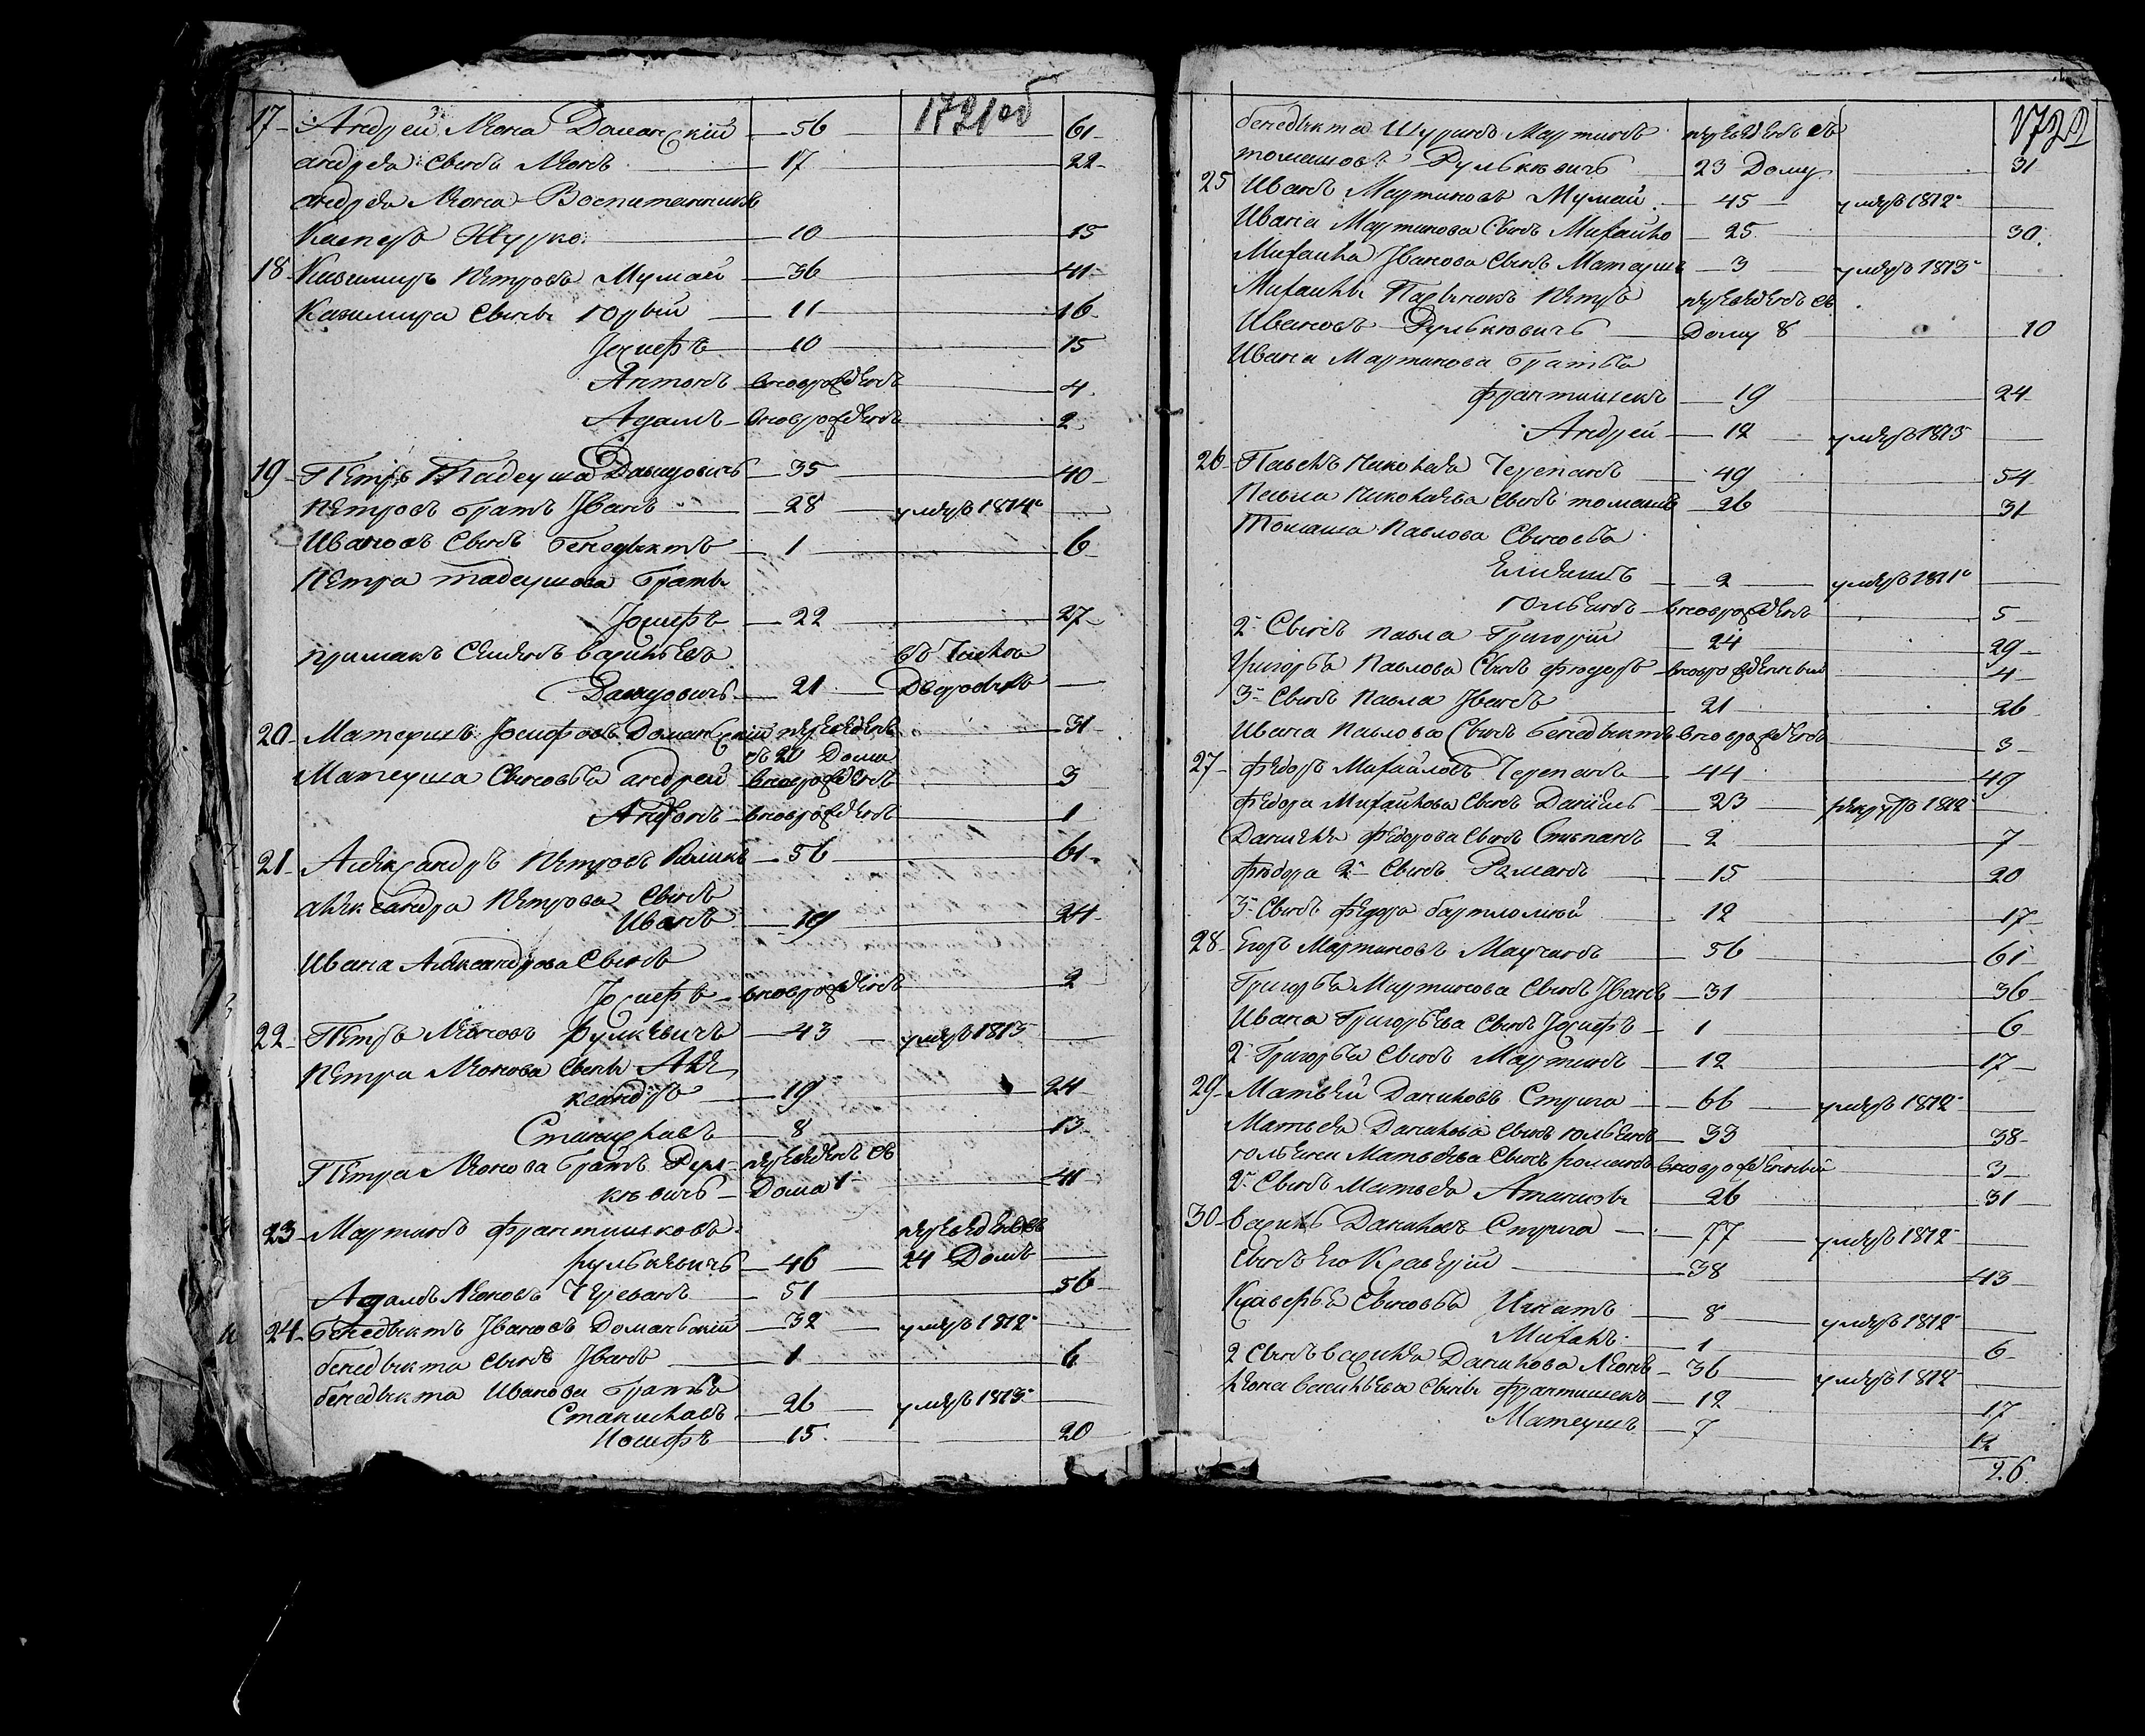 1721 об
17 Андрей Леона Доманский 56 61
андрея Сынъ Леонъ 17 22
андрея Леона Воспитанникъ
Касперъ 10 15
18 Казимиръ Петровъ Мумай 36 41
Казимира Сыны Юрый 11 16
Іосифъ 10 15
Антонъ вноврожденъ 4
Адамъ вноврожденъ 2
19 Петръ Тадеуша 35 40
Петровъ братъ Іванъ 28 умеръ 1814
Ивановъ Сынъ бенедыктъ 1 6
Петра тадеушова браты
Іосифъ 22 27
примакъ Семенъ васильевъ
21
20 Матеушъ Іосифовъ Доманский переведенъ 31
съ 21 Дома
Матеуша Сыновья андрей вноврожденъ 3
вноврожденъ 1
21 Александръ Петровъ 56 61
александра Петрова Сынъ
Иванъ 19 24
Ивана Александрова Сынъ
Іосифъ вноврожденъ 2
22 Петръ Леоновъ 43 умеръ 1813
Петра Леонова Сыны Але
ксандръ 19 24
Станиславъ 8 13
Петра Леонова братъ переведенъ съ
Дома 1 41
23 Мартинъ францишковъ переведенъ въ
46 24 Домъ
Адамъ Леоновъ 51 56
24 бенедыктъ Івановъ Доманьский 32 умеръ 1812
бенедыкта сынъ Іванъ 1 6
бенедыкта Иванова братья
Станиславъ 26 умеръ 1813
Иосифъ 15 20
1722
бенедыктов Шуринъ Мартинъ переведенъ съ
томашовъ 23 Дому 31
25 Иванъ Мартиновъ Мумай 45 умеръ 1812
Ивана Мартинова Сынъ Михайло 25 30
Михайла Іванова Сынъ Матеушъ 3 умеръ 1813
Михайлы Пасынокъ Петръ переведенъ съ
Ивановъ Дому 8 10
Ивана Мартинова братья
францишекъ 19 24
Андрей 19 умеръ 1813
26 Павелъ Николая 49 54
Павла Николаева Сынъ томашъ 26 31
Томаша Павлова Сыновья
2 умеръ 1811
вноврожденъ 5
2 Сынъ павла Григорій 24 29
Григорья Павлова Сынъ вноврожденный 4
3 Сынъ Павла Іванъ 21 26
Ивана Павлова Сынъ бенедыктъ вноврожденъ 3
27 Федоръ Михайловъ 44 49
Федора Михайлова Сынъ Даніель 23 рекрутъ 1812
Даниеля Федорова Сынъ Степанъ 2 7
Федора 2 Сынъ Романъ 15 20
3 Сынъ Федора бартломей 12 17
28 Мартиновъ 56 61
Григорья Мартинова Сынъ Іванъ 31 36
Ивана Григорьева Сынъ Іосифъ 1 6
2 Григорья Сынъ Мартинъ 12 17
29 Матвей Даниловъ Стрига 66 умеръ 1812
Матвея Данилова Сынъ 33 38
Матвеева Сынъ романъ вноврожденный 3
2 Сынъ Матвея 26 31
30 василь Даниловъ Стрига 77 умеръ 1812
Сынъ его Ксаверій 38 43
Ксаверья Сыновья Игнатъ 8 умеръ 1812
1 6
2 Сынъ василья Данилова Леонъ 36 умеръ 1812
Леона васильева Сыны францишекъ 12 17
Матеушъ 7 12
26